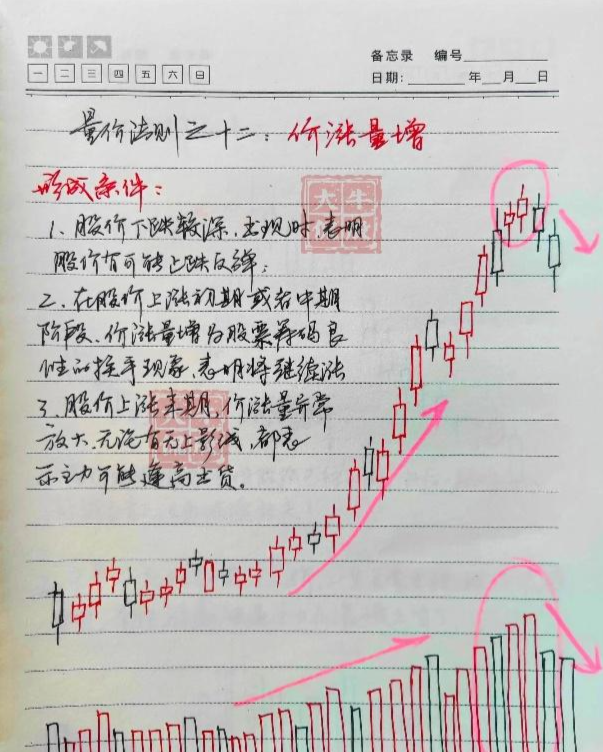 备忘录 编号
一 二 三 四 五 六 日
日期: 年 月 日
量价法则之十二:价涨量增
形成条件:
1、股价下跌较深、出现时表明
股价有可能止跌反弹;
2、在股价上涨初期或者中期
阶段、价涨量增为股票筹码良
性的换手现象、表明将继续涨
3、股价上涨末期、价涨量异常
放大、无论有无上影线、都表
示主力可能逢高出货。
大牛